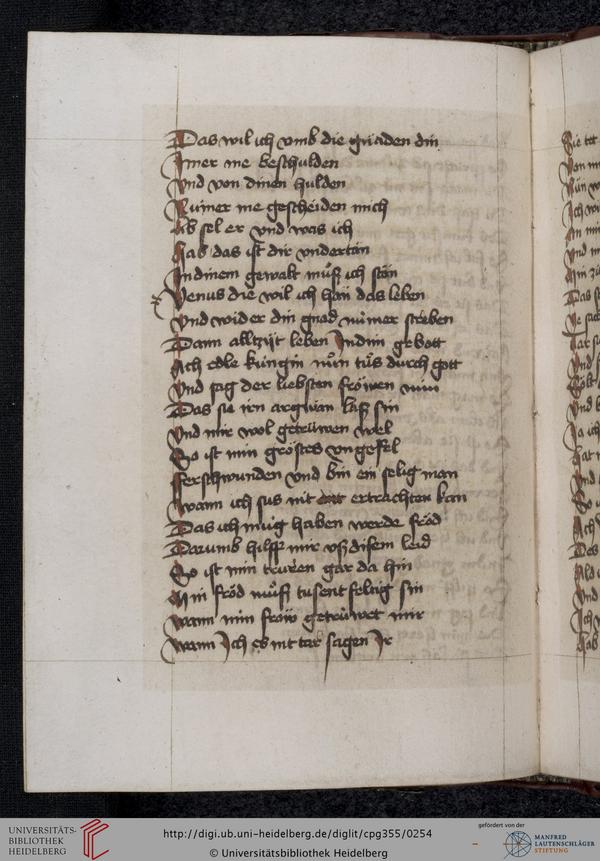 Das wil ich vmb die gnaden din
Jmer me beschulden
Vnd von dinen hulden
Numer me gescheiden mich
Lib sel er vnd was ich
Hab das ist dir vndertan
Jn dinem gewalt muͦß ich stan
Venus die wil ich han das leben
Vnd wider din gnad nümer streben
Dann alltzijt leben Jn dim gebott
Ach edle küngin nuͦn tuͦs durch gott
Vnd sag der liebsten fröwen min
Das sie iren argwan laß sin
Vnd mir wol getrüwen wel
So ist min gröstes vngefel
Ferschwunden vnd bin ein selig man
Wann ich sus nit ertrachten kan
Das ich müg haben werde fröd
Darumb hilff mir vß disem leid
So ist min truren gar da hin
Min fröd muͦß tusentfeltig sin
Wann min frow getrüwet mir
Wann Jch es nit tar sagen Jr
UNIVERSITÄTS-
BIBLIOTHEK
HEIDELBERG
http://digi.ub.uni-heidelberg.de/diglit/cpg355/0254
© Universitätsbibliothek Heidelberg
gefördert von der
MANFRED
LAUTENSCHLÄGER
STIFTUNG